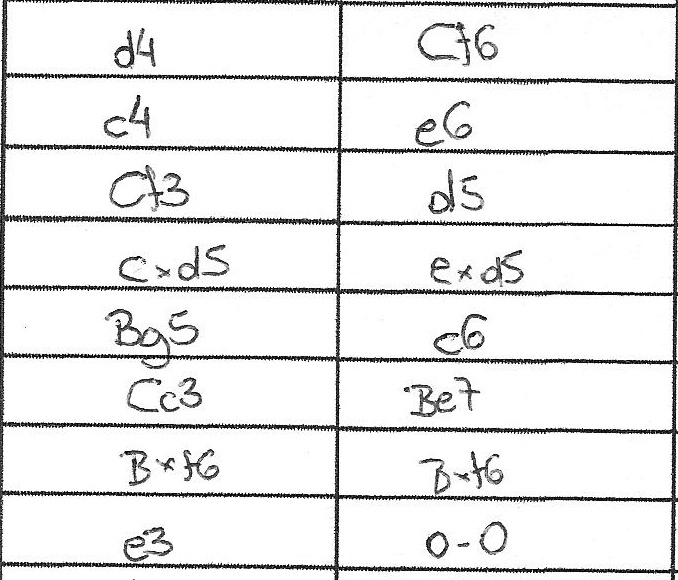 d4 Cf6
c4 e6
Cf3 d5
cxd5 exd5
Bg5 c6
Cc3 Be7
Bxf6 Bxf6
e3 0-0